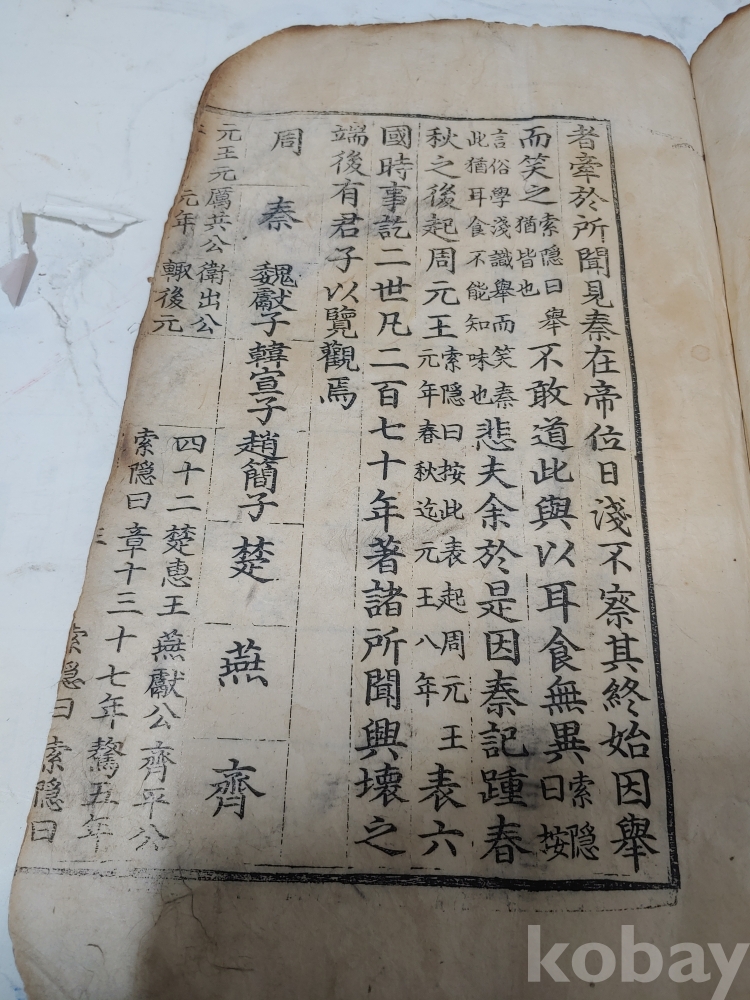 者牽於所聞見秦在帝位日淺不察其終始因舉
而笑之索隱曰舉猶皆也不敢道此與以耳食無異索隱曰按
言俗學淺識舉而笑秦此猶耳食不能知味也悲夫余於是因秦記踵春
秋之後起周元王索隱曰按此表起周元王元年春秋迄元王八年表六
國時事訖二世凡二百七十年著諸所聞興壞之
端後有君子以覽觀焉
周
秦
魏獻子韓宣子趙簡子
楚
燕
齊
元王元
厲共公元年
衛出公輒後元
四十二
楚惠王章十三
燕獻公十七年
齊平公驁五年
索隱曰
索隱曰
索隱曰
kobay